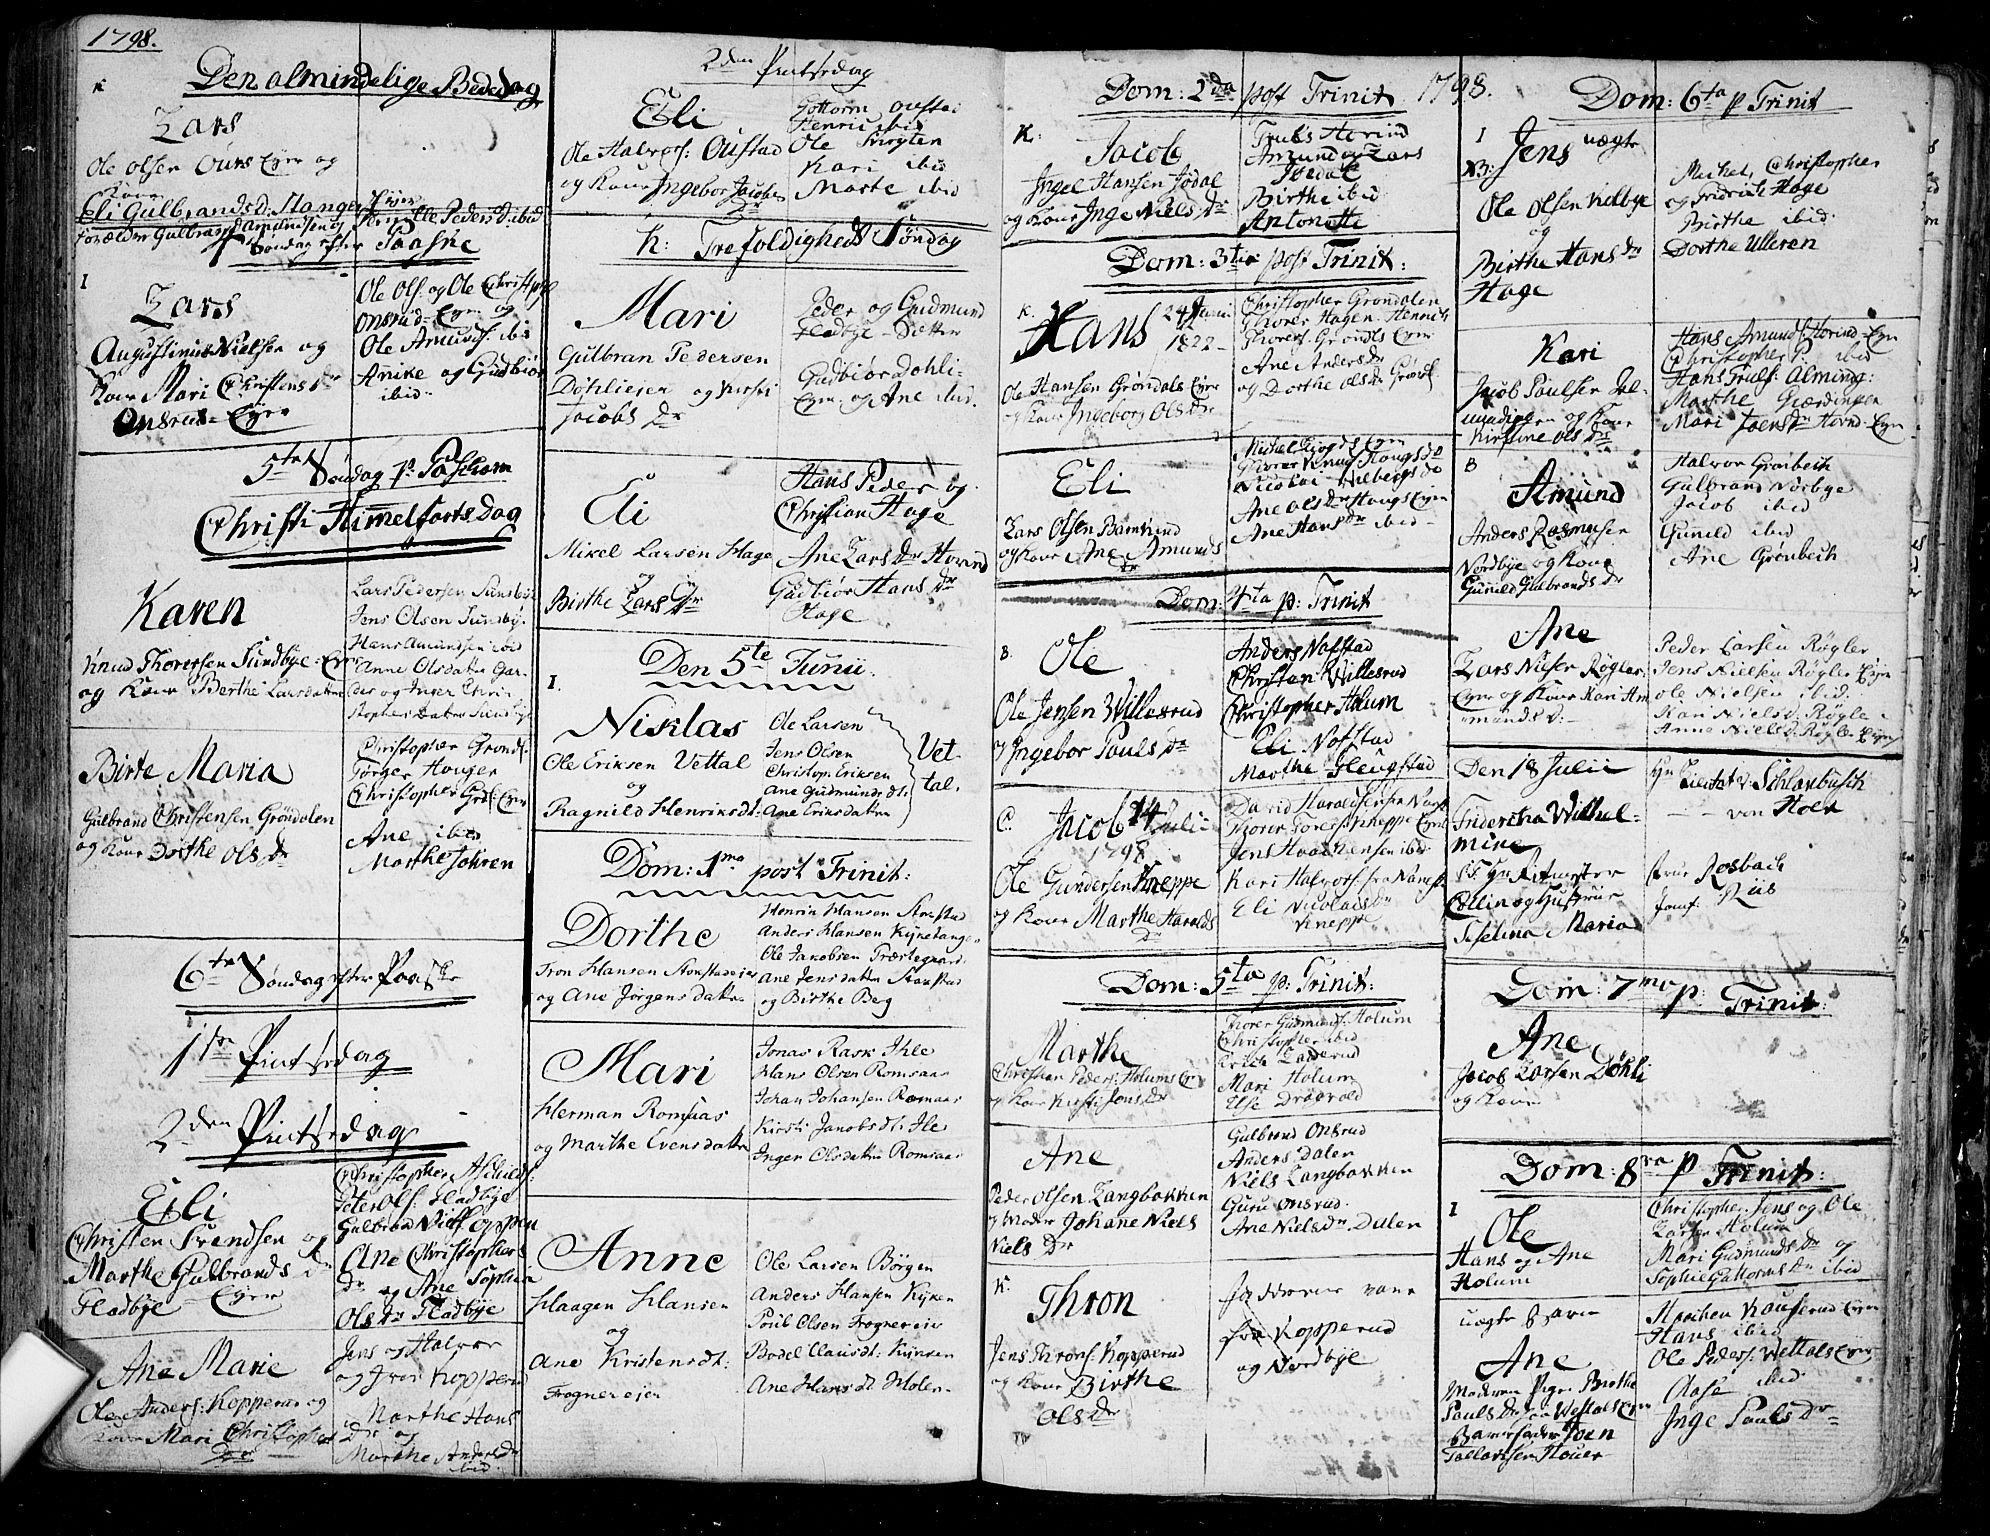 1798.
Den almindelige Bededag
K
Lars
Ole Olsen Ours Eyer og
Kone
Eli Gulbrandsd: Manger
Pedersd: ibid
Søndag efter Paaske
I
Lars
Augustinus Nielsen og
Kone Mari Christens Dr
Onsrud - Eyer
Ole Ols: og Ole Christoph
Onsrud - Eyer og
Ole Amunds: ibid
Anike og Gudbiør
ibid
5te Søndag p: Pascham
Christi Himmelfarts Dag
Karen
Knud Thoresen Sundbye - Eyer
og Kone Berthe Larsdatter
Lars Pedersen Sundbye
Jens Olsen Sundby
Hans Amundsen ibid
Anne Olsdatter Gar-
der og Inger Chri-
stophersdatter Sundbye
Birte Maria
Gulbrand Christensen Grøndalen
og Kone Dorthe Ols Dr
Christopher Grønd:
Tørger Houger
Christopher Grøl: Eyer
Ane ibid
Marthe Johren
6te Søndag efter Paaske
1ste Pintsedag
2den Pintsedag
Eli
Christen Svendsen og
Marthe Gulbrands Dr
Fladbye Eyer
Christopher
Peter Ols: Fladbye
Gulbran Niels: Oppen
Ane Christophers
Dr og Ane Sophia
Ols Dr Fladbye
Ane Marie
Ole Anders: Kopperud og
Kone Mari Christophers
Dr
Jens og Halvor
og Iver Kopperud
Marthe Hans
Dr og
Marthe Anders Dr
ibid
2den Pintsedag
Eli
Ole Halvors: Oustad
og Kone Ingebor Jacobs
Dr
Gottorm Oustad
Henric ibid
Ole
Kari ibid
Marte ibid
K: Trefoldigheds Søndag
Mari
Gulbran Pedersen
Döhliejer og Kirsti
Jacobs Dr
Peder og Gudmund
Fladbye - Sætter
Gudbiör Döhli-
Eyer og Ane ibid.
Eli
Mikel Larsen Hage
og
Birthe Lars Dr
Hans Peder og
Christian Hage
Ane Lars Dr Hovind
Gudbiör Hans Dr
Hage
Den 5te Junii.
I.
Niklas
Ole Eriksen Vettal
og
Ragnild Henriksdt:
Ole Larsen
Jens Olsen
Christoph Eriksen
Ane Gudmundsdt:
Ane Eriksdatter
Vet-
tal.
Dom: 1ma post Trinit:
Dorthe
Tron Hansen Stonstadeier
og Ane Jörgensdatter
Henrik Hansen Stonstad
Anders Hansen Kyketange
Ole Jacobsen Træstegaard
Ane Jensdatter Stonstad
og Birthe Berg
Mari
Herman Romsaas
og Marthe Evensdatter
Jonas Rask Ihle
Hans Olsen Romsaas
Johan Johansen Romsaas
Kirsti Jacobsdt: Ihle
Inger Olsdatter Romsaas
Anne
Haagen Hansen
og
Ane Kristensdt:
Frogner ejer
Ole Larsen Börgen
Anders Hansen Kjken
Poul Olsen Frogner eie
Bodel Clausdt: Kjken
Ane Hansdt Holen
Dom: 2da post Trinit 1798.
K:
Jacob
Ingel Hansen Jødal
og Kone Inge Niels Dr
Truls Hovind
Amund og Lars
Jødal
Birthe ibid
Antonette
Dom: 3tia post Trinit:
K.
Hans 24 Junii
1822
Ole Hansen Grøndals Eyer
og Kone Ingeborg Ols Dr
Christopher Grøndalen
Thorer Hagen Henrich
Thorers: Grøndls Eyer
Ane Anders Dr
og Dorthe Ols Dr Grøndl
Eli
Lars Olsen
og Kone Ane Amunds
Dr
Ane Ols Dr Hougs Eyer
Ane Hans Dr ibid
Dom: 4ta p: Trinit
B.
Ole
Ole Jensen Willesrud
og Ingebor Pauls Dr
Anders Nafstad
Christen Willesrud
Christopher Holum
Eli Nafstad
Marthe Fleugstad
C.
Jacob 14 Julii
1798
Ole Gundersen Kneppe
og Kone Marthe Haralds
Dr
David Haraldsen fra
Thorer Toresen Kneppe Eyer
Jens Haachensen ibid
Kari Halvors: fra
Eli Nicolais Dr
Kneppe
Dom: 5ta p: Trinit:
Marthe
Christian Peders: Holums Eyer
og Kone Kirsti Jens Dr
Thorer Gudmunds: Holum
Christopher ibid
Mari Holum
Else Dragvold
Ane
Peder Olsen Langbakken
og Moder Johane Niels
Niels Dr
Gulbrand Onsrud
Anders Dalen
Niels Langbakken
Guru Onsrud.
Ane Niels Dr Dalen
K.
Thron
Jens Throns: Kopperud
og Kone Birthe
Ols Dr
Faddere vare
fra Kopperud
og Nordbye
Dom: 6ta p Trinit
I
Jens uægte
Ole Olsen Kielbye
og
Birthe Hans Dr
Hage
Mickel, Christopher
og Fredrik Hage
Birthe ibid.
Dorthe Ulleren
Kari
Jacob Paulsen Jal-
og Kone
Kirstine Ols Dr
Hans Amunds: Hovind - Eyer
Christopher P. ibid
Hans Truls: Alming:
Marthe Gierdingen
Mari Joens Dr Hovind - Eyer
B
Amund
Anders Rasmusen
Nordbye og Kone
Gunild Gulbrands Dr
Halvor Grønbech
Gulbrand Norbye
Jacob ibid
Gunild ibid
Ane Grønbech
Ane
Lars Nielsen Røgler
Eyer og Kone Kari Am
munds D:
Peder Larsen Røgler
Jens Nielsen Røgler Eyer
Ole Nielsen ibid.
Kari Niels D: Røgle
Anne Niels D: Røgler Eyer
Den 18 Julii
Friderica Wilhel-
mine
Hr Ritmester
Collin og Hustrue
Iselina Maria
Hr Schlanbusch
- - von Holen
Frue Rosbach
Jomf. Riis
Dom: 7ma p: Trinit:
Ane
Jacob Larsen Döhli
og Kone
Dom: 8va p Trinit:
I
Ole
Hans og Ane
Holum
Christopher, Jens og Ole
Larsen Holum
Mari Gudmunds Dr og
Sophie Gattorms Dr ibid
uægte Barn
Ane
Moderen Pige Birthe
Pauls Dr fra Wettals Eyer
Barnefader Joen
Tollevsen Houer
Haachen Kauserud Eyer
Hans ibid
Ole Peders: Wettals Eyer
Aase ibid.
Inge Pauls Dr